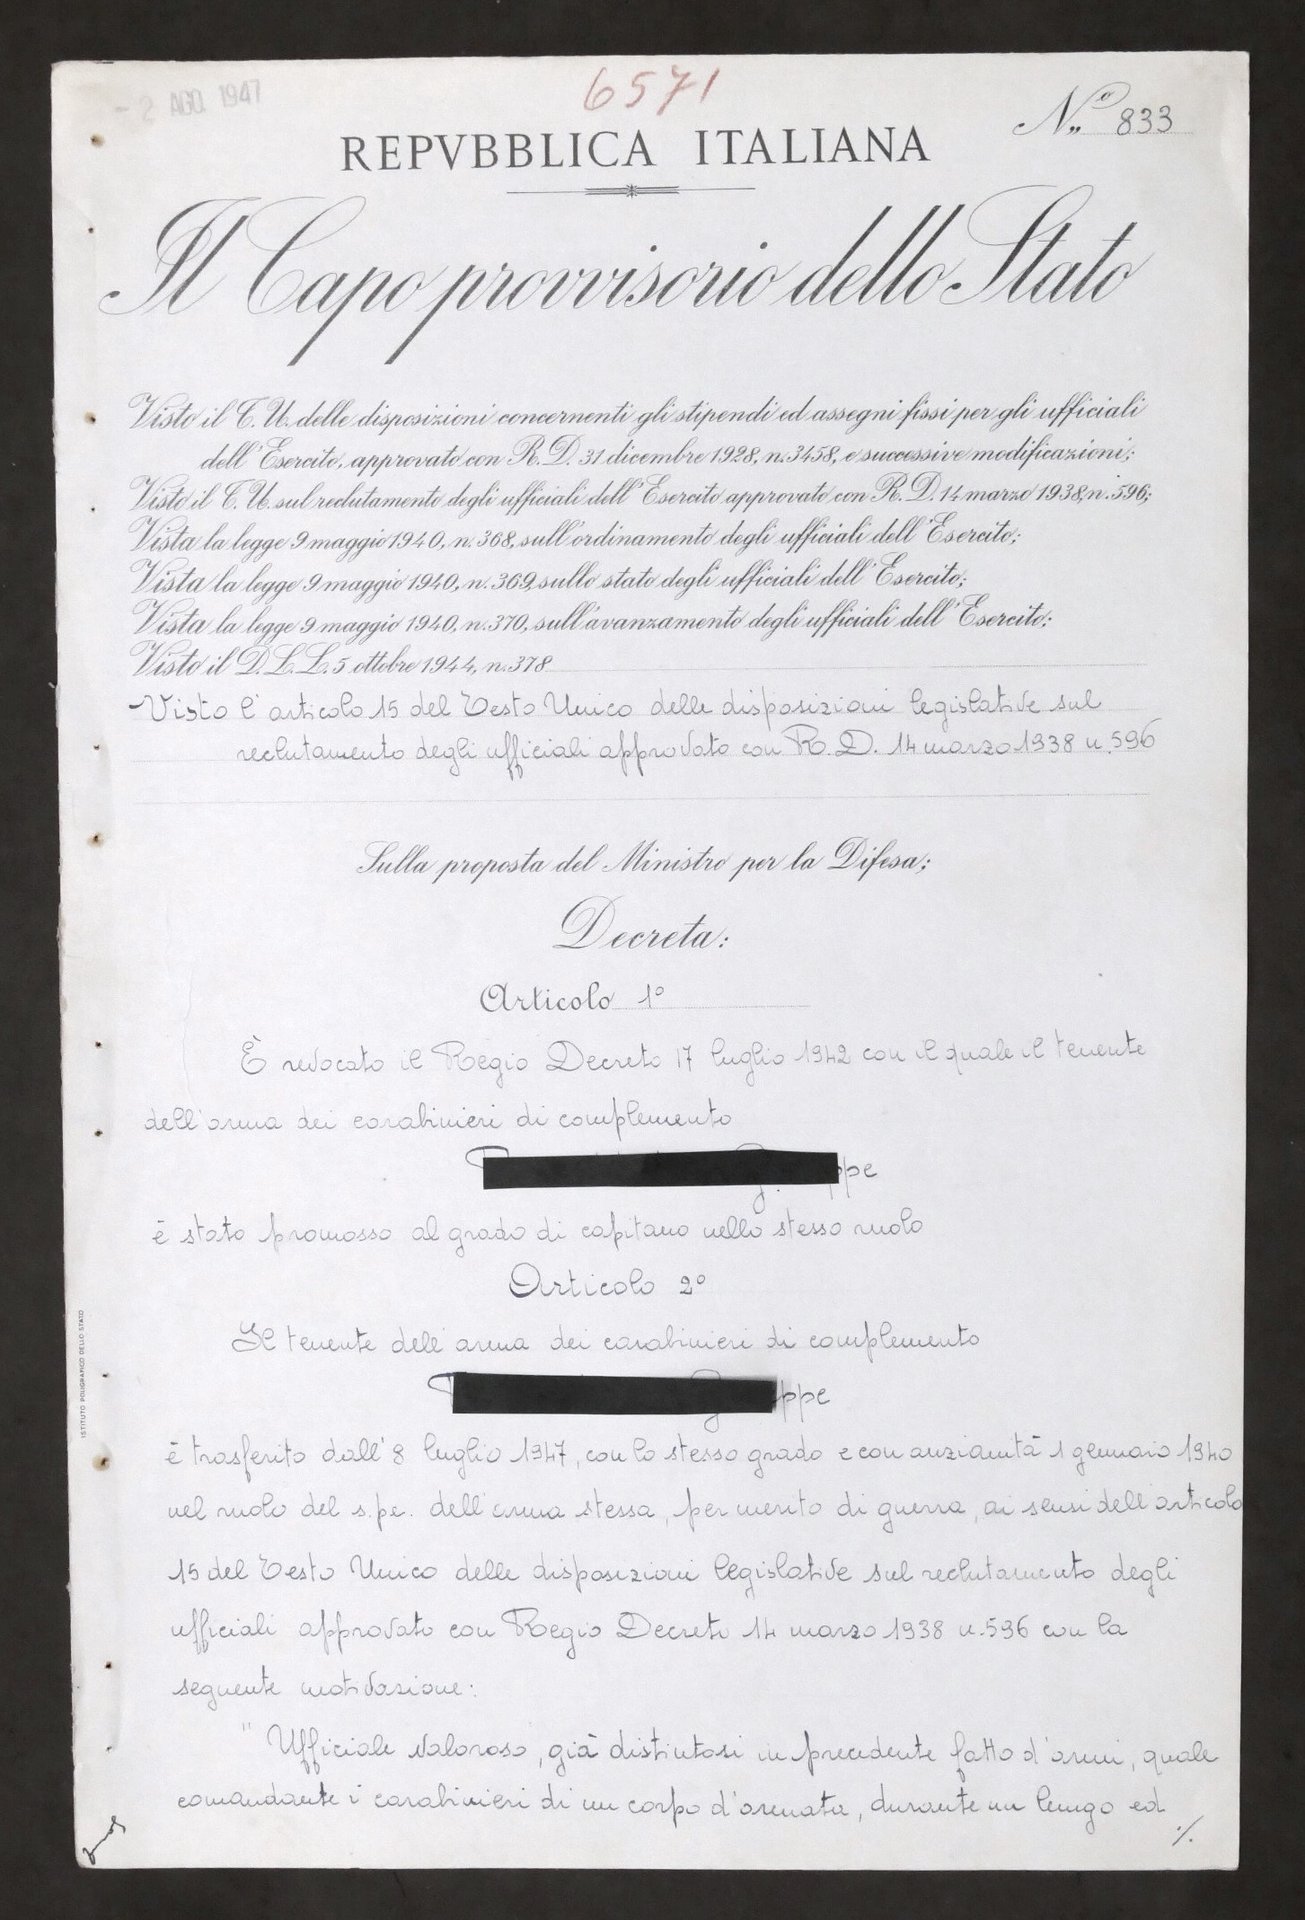 - 2 AGO. 1947
6571
Nº 833
REPVBBLICA ITALIANA
Il Capo provvisorio dello Stato
Visto il T. U. delle disposizioni concernenti gli stipendi ed assegni fissi per gli ufficiali
dell'Esercito, approvato con R. D. 31 dicembre 1928, n. 3458, e successive modificazioni;
Visto il T. U. sul reclutamento degli ufficiali dell'Esercito approvato con R. D. 14 marzo 1938, n. 596;
Vista la legge 9 maggio 1940, n. 368, sull'ordinamento degli ufficiali dell'Esercito;
Vista la legge 9 maggio 1940, n. 369, sullo stato degli ufficiali dell'Esercito;
Vista la legge 9 maggio 1940, n. 370, sull'avanzamento degli ufficiali dell'Esercito;
Visto il D. L. L. 5 ottobre 1944, n. 378
- Visto l'articolo 15 del Testo Unico delle disposizioni legislative sul
reclutamento degli ufficiali approvato con R. D. 14 marzo 1938 n. 596
Sulla proposta del Ministro per la Difesa;
Decreta:
Articolo 1º
È revocato il Regio Decreto 17 luglio 1942 con il quale il tenente
dell'arma dei carabinieri di complemento
ppe
è stato promosso al grado di capitano nello stesso ruolo
Articolo 2º
Il tenente dell'arma dei carabinieri di complemento
ppe
è trasferito dall'8 luglio 1947, con lo stesso grado e con anzianità 1 gennaio 1940
nel ruolo del s.pe. dell'arma stessa, per merito di guerra, ai sensi dell'articolo
15 del Testo Unico delle disposizioni legislative sul reclutamento degli
ufficiali approvato con Regio Decreto 14 marzo 1938 n. 596 con la
seguente motivazione:
" Ufficiale valoroso, già distintosi in precedente fatto d'armi, quale
comandante i carabinieri di un corpo d'armata, durante un lungo ed
./.
ISTITUTO POLIGRAFICO DELLO STATO